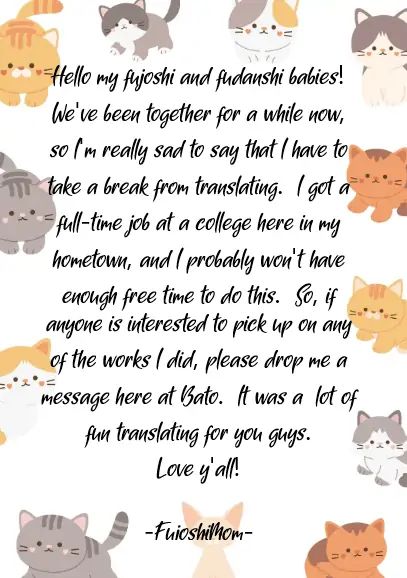 Hello my fujoshi and fudanshi babies!
We've been together for a while now,
so I'm really sad to say that I have to
take a break from translating. I got a
full-time job at a college here in my
hometown, and I probably won't have
enough free time to do this. So, if
anyone is interested to pick up on any
of the works I did, please drop me a
message here at Bato. It was a lot of
fun translating for you guys.
Love y'all!
-FujoshiMom-